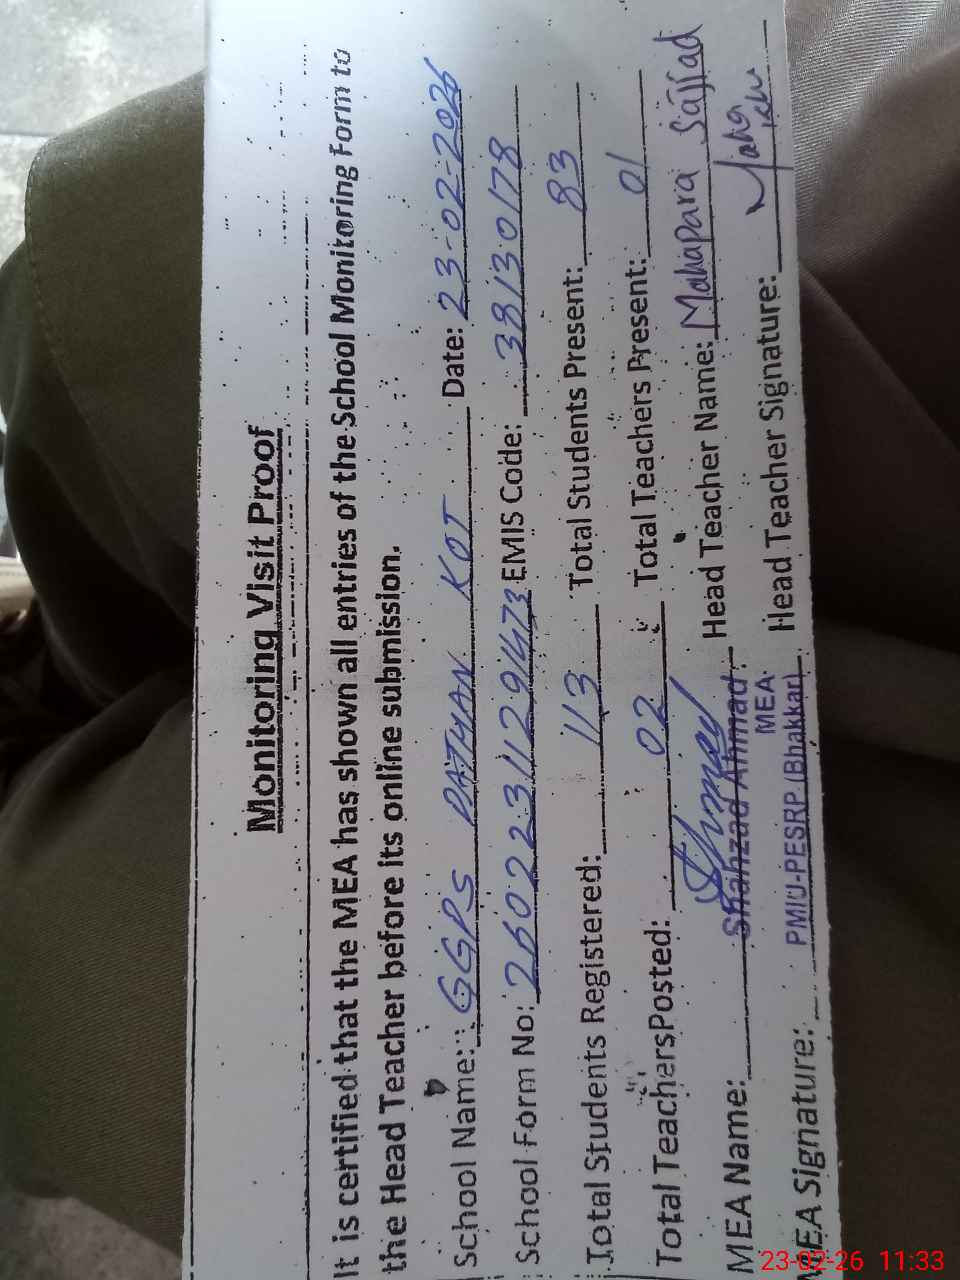 Monitoring Visit Proof
It is certified that the MEA has shown all entries of the School Monitoring Form to
the Head Teacher before its online submission.
School Name: GGPS PATHAN KOT Date: 23-02-2026
School Form No: 26022311291473 EMIS Code: 38130178
Total Students Registered: 113 Total Students Present: 83
Total Teachers Posted: 02 Total Teachers Present: 01
MEA Name: Shahzad Ahmad Head Teacher Name: Mahapara Sajjad
MEA
MEA Signature: PMIU-PESRP (Bhakkar) Head Teacher Signature:
23-02-26 11:33